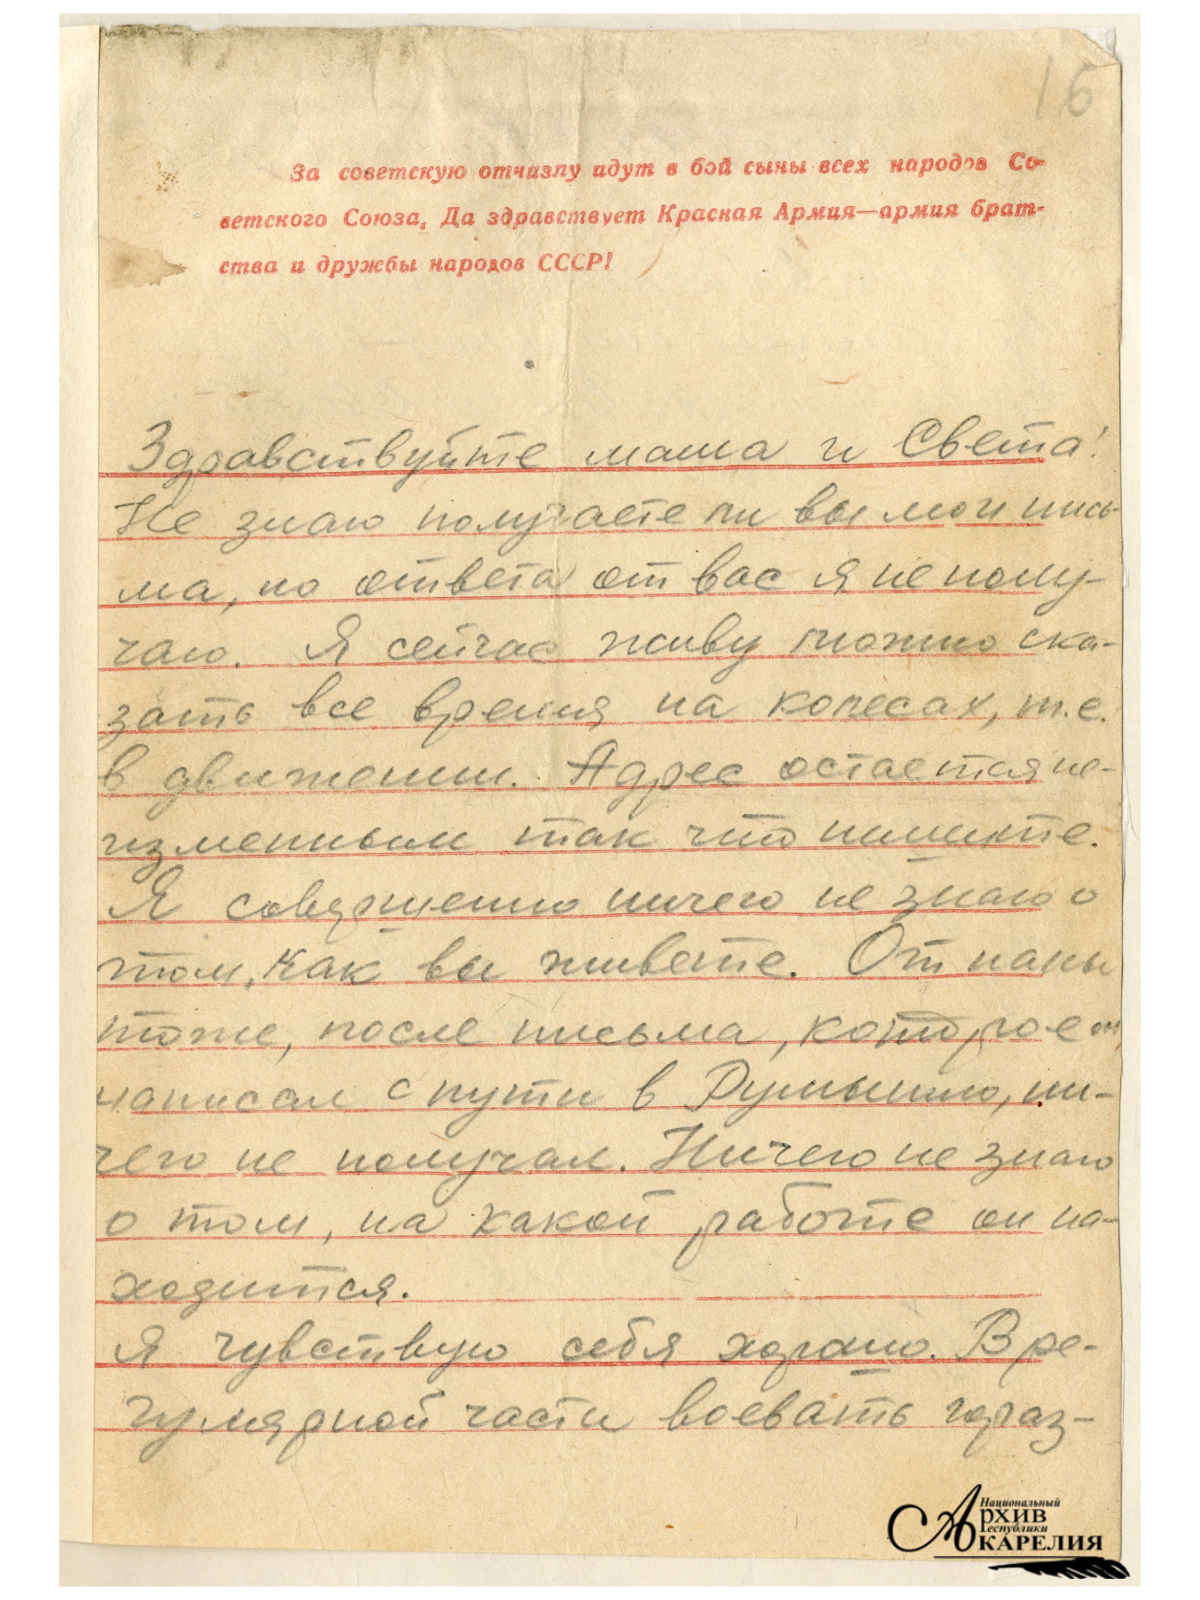 16
За советскую отчизну идут в бой сыны всех народов Со-
ветского Союза. Да здравствует Красная Армия—армия брат-
ства и дружбы народов СССР!
Здравствуйте мама и Света!
Не знаю получаете ли вы мои пись-
ма, но ответа от вас я не полу-
чаю. Я сейчас живу можно ска-
зать все время на колесах, т.е.
в движении. Адрес остается не-
изменным так что пишите.
Я совершенно ничего не знаю о
том, как вы живете. От папы
тоже, после письма, которое он
написал с пути в Румынию, ни-
чего не получал. Ничего не знаю
о том, на какой работе он на-
ходится.
Я чувствую себя хорошо. В ре-
гулярной части воевать гораз-
Национальный
Архив
Республики
Карелия